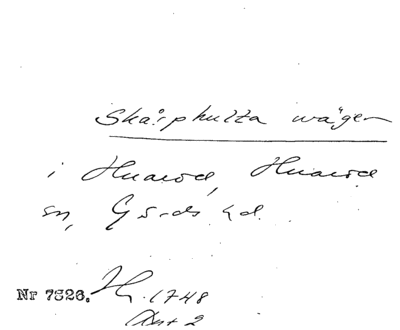 Skårphulta wägen
i Huarod, Huarod
sn, Gärds hd.
Nr 7526. 1748